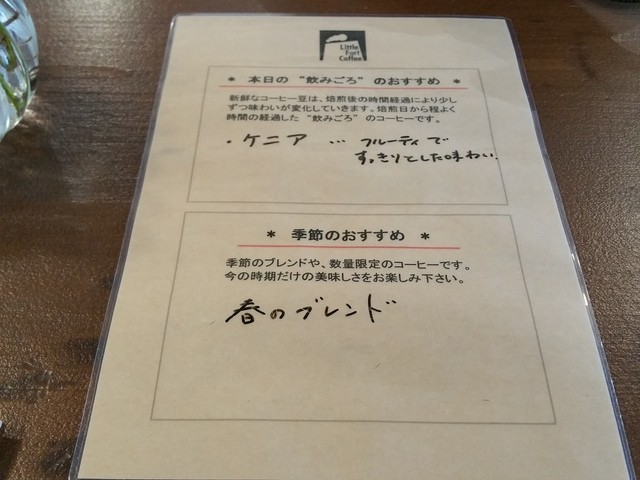 Little
Fort
Coffee
* 本日の "飲みごろ" のおすすめ *
新鮮なコーヒー豆は、焙煎後の時間経過により少し
ずつ味わいが変化していきます。焙煎日から程よく
時間の経過した "飲みごろ" のコーヒーです。
・ケニア … フルーティで
すっきりとした味わい.
* 季節のおすすめ *
季節のブレンドや、数量限定のコーヒーです。
今の時期だけの美味しさをお楽しみ下さい。
春のブレンド